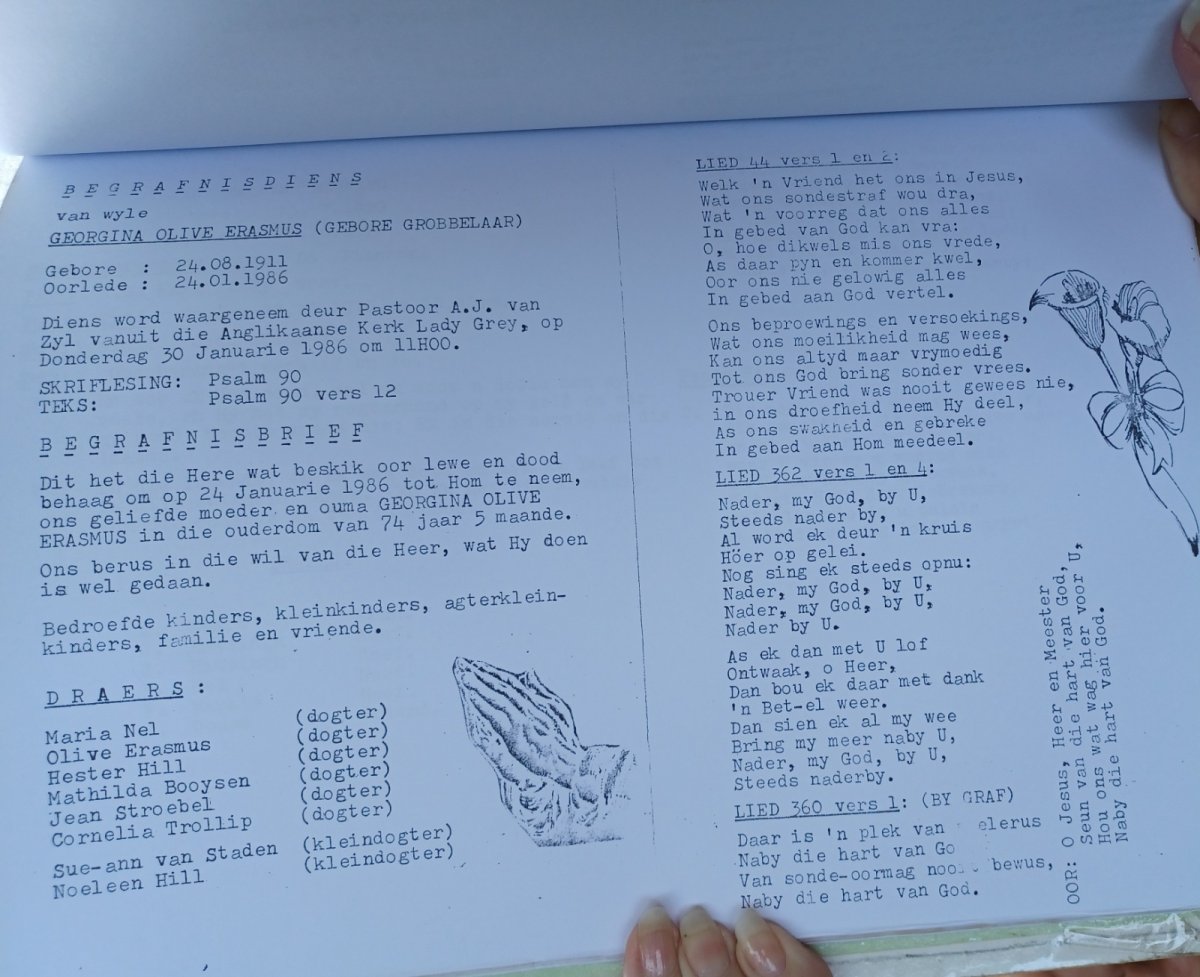 BEGRAFNISDIENS
van wyle
GEORGINA OLIVE ERASMUS (GEBORE GROBBELAAR)
Gebore : 24.08.1911
Oorlede : 24.01.1986
Diens word waargeneem deur Pastoor A.J. van
Zyl vanuit die Anglikaanse Kerk Lady Grey, op
Donderdag 30 Januarie 1986 om 11H00.
SKRIFLESING: Psalm 90
TEKS: Psalm 90 vers 12
BEGRAFNISBRIEF
Dit het die Here wat beskik oor lewe en dood
behaag om op 24 Januarie 1986 tot Hom te neem,
ons geliefde moeder en ouma GEORGINA OLIVE
ERASMUS in die ouderdom van 74 jaar 5 maande.
Ons berus in die wil van die Heer, wat Hy doen
is wel gedaan.
Bedroefde kinders, kleinkinders, agterklein-
kinders, familie en vriende.
DRAERS:
Maria Nel (dogter)
Olive Erasmus (dogter)
Hester Hill (dogter)
Mathilda Booysen (dogter)
Jean Stroebel (dogter)
Cornelia Trollip (dogter)
Sue-ann van Staden (kleindogter)
Noeleen Hill (kleindogter)
LIED 44 vers 1 en 2:
Welk 'n Vriend het ons in Jesus,
Wat ons sondestraf wou dra,
Wat 'n voorreg dat ons alles
In gebed van God kan vra:
O, hoe dikwels mis ons vrede,
As daar pyn en kommer kwel,
Oor ons nie gelowig alles
In gebed aan God vertel.
Ons beproewings en versoekings,
Wat ons moeilikheid mag wees,
Kan ons altyd maar vrymoedig
Tot ons God bring sonder vrees.
Trouer Vriend was nooit gewees nie,
in ons droefheid neem Hy deel,
As ons swakheid en gebreke
In gebed aan Hom meedeel.
LIED 362 vers 1 en 4:
Nader, my God, by U,
Steeds nader by,
Al word ek deur 'n kruis
Höer op gelei.
Nog sing ek steeds opnu:
Nader, my God, by U,
Nader, my God, by U,
Nader by U.
As ek dan met U lof
Ontwaak, o Heer,
Dan bou ek daar met dank
'n Bet-el weer.
Dan sien ek al my wee
Bring my meer naby U,
Nader, my God, by U,
Steeds naderby.
LIED 360 vers 1: (BY GRAF)
Daar is 'n plek van
Naby die hart van
Van sonde-oormag bewus,
Naby die hart van God.
OOR: O Jesus, Heer en Meester
Seun van die hart van God,
Hou ons wat wag hier voor U,
Naby die hart van God.